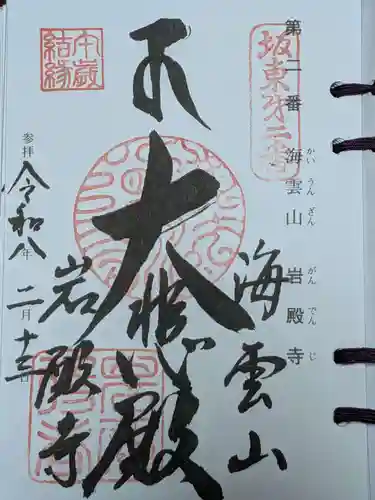 第二番 海雲山 岩殿寺
かいうんざん がんでんじ
坂東第二番
海雲山
大悲殿
岩殿寺
午歳
結縁
参拝 令和八年 二月 十三日